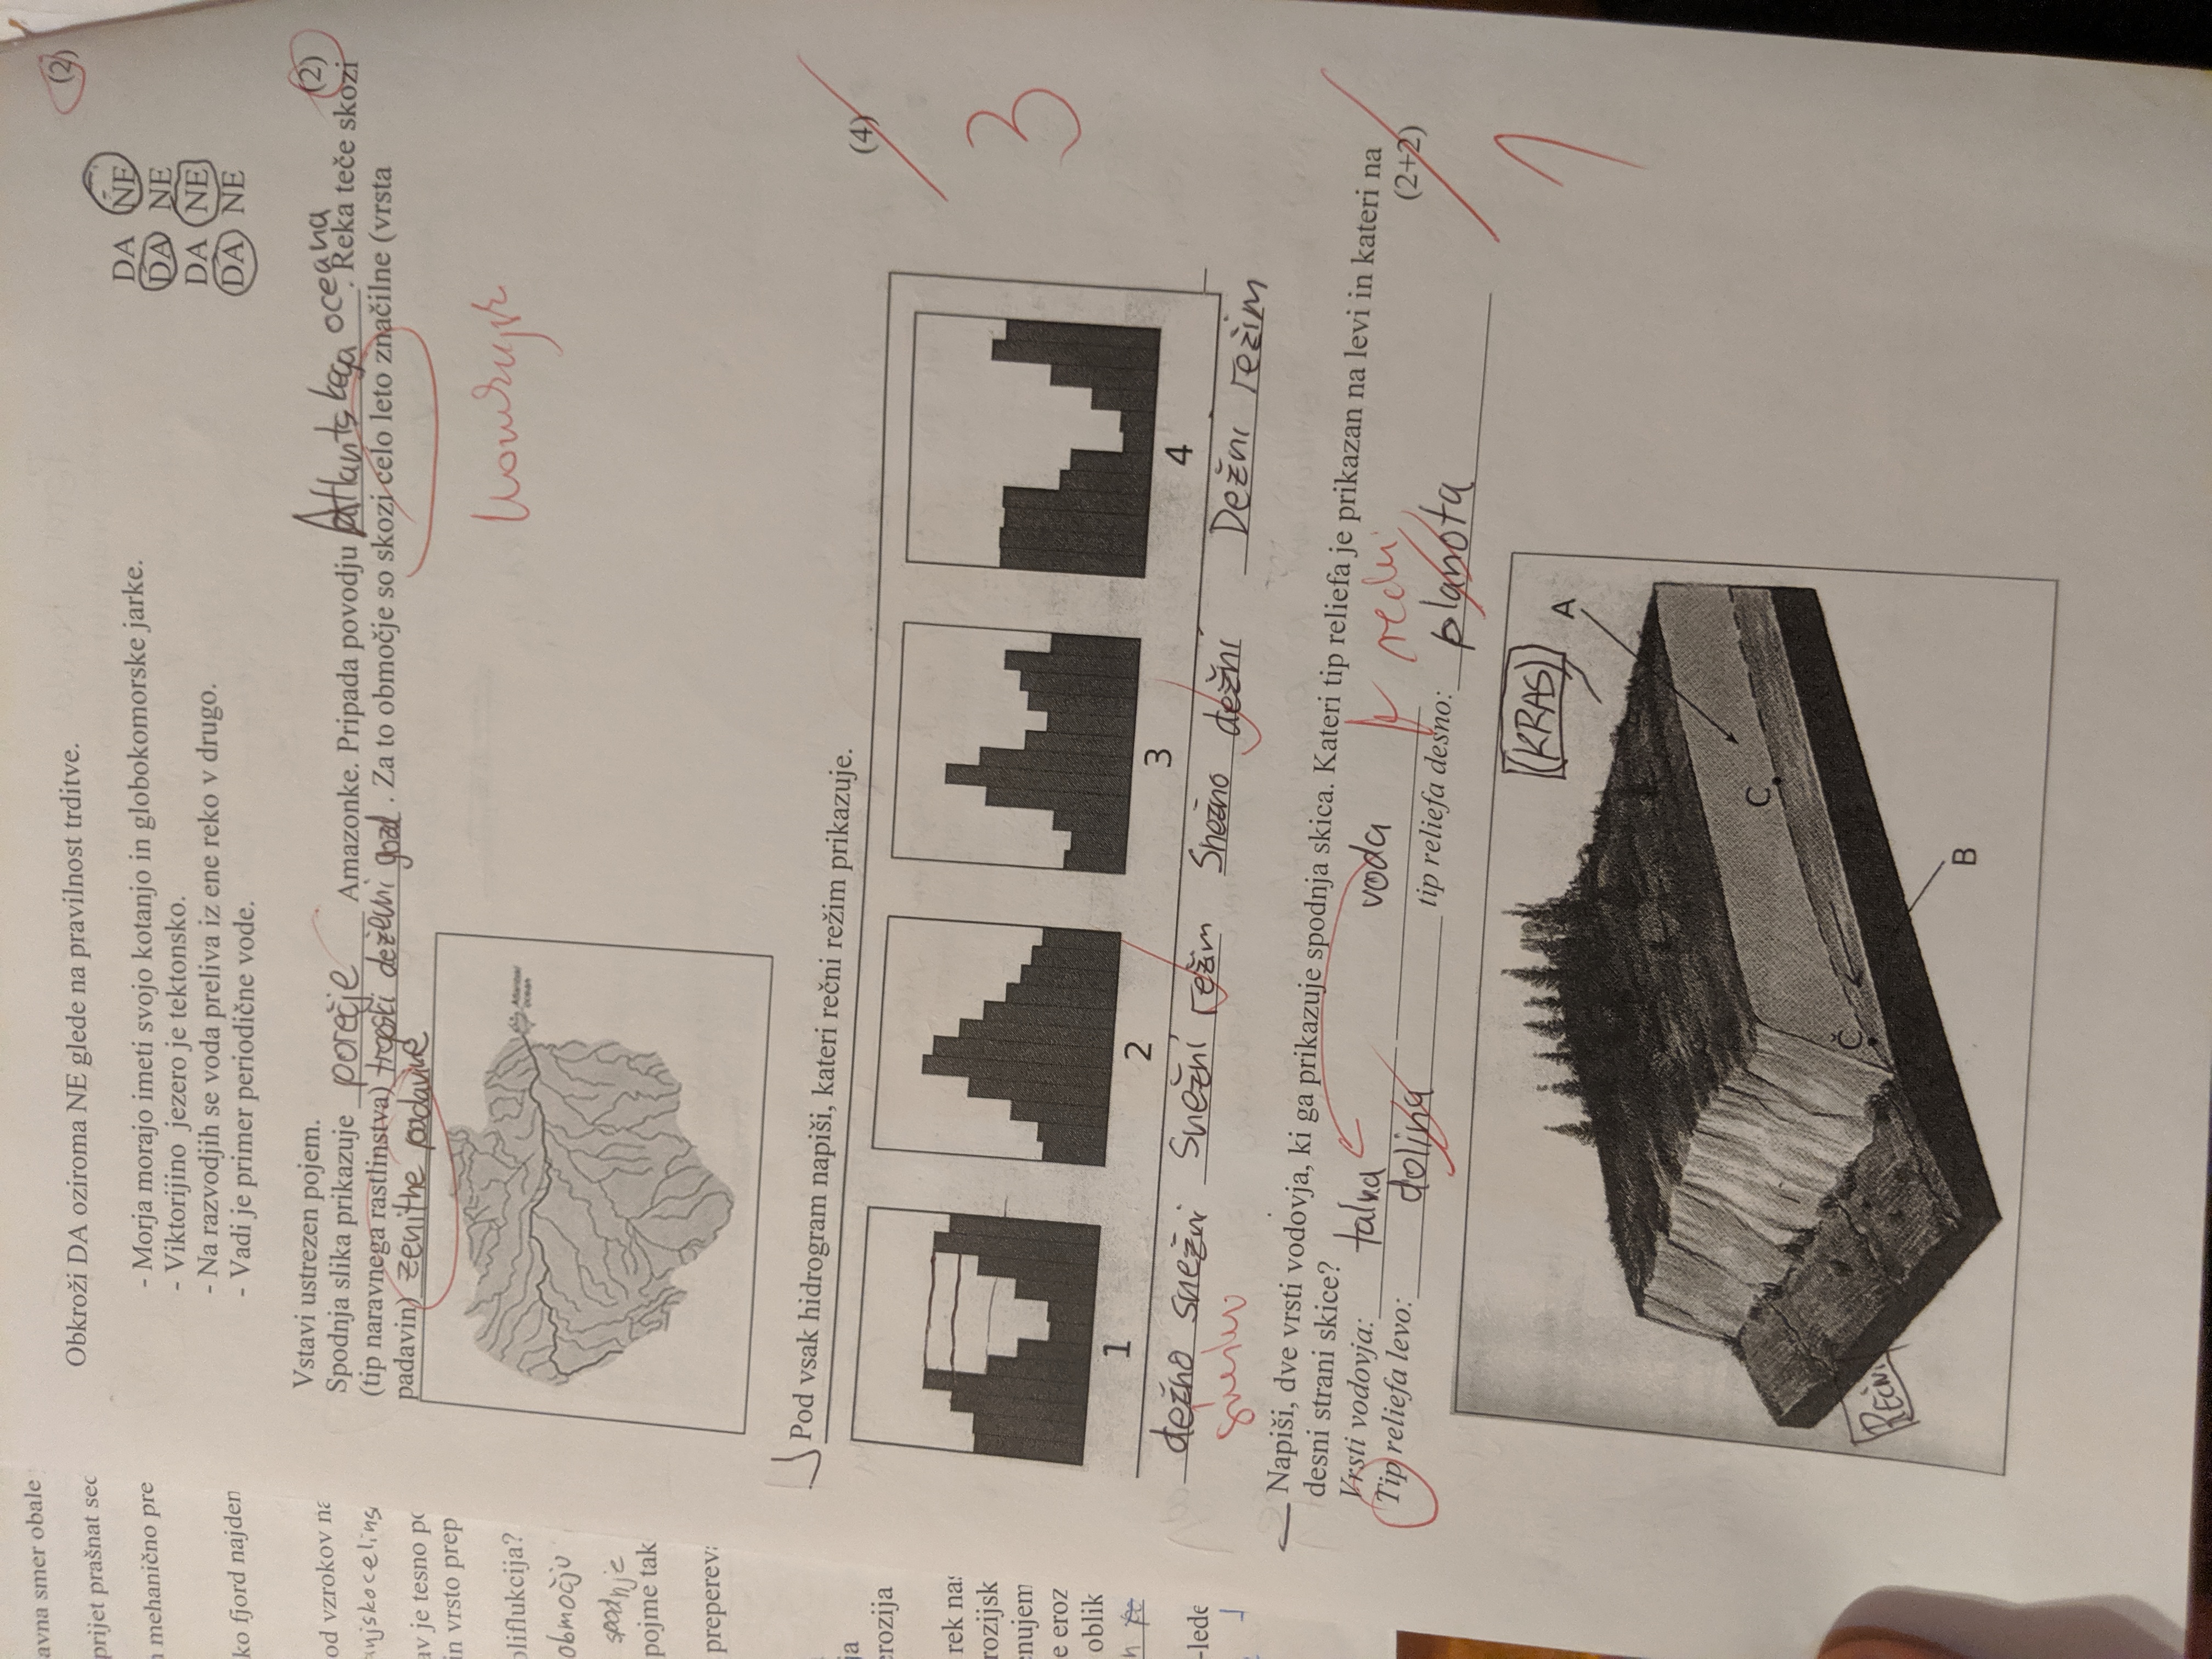 avna smer obale
prijet prašnat sec
n mehanično pre
ko fjord najden
od vzrokov na
anjskocelins
av je tesno po
in vrsto prep
oliflukcija?
območju
spodnje
pojme tak
preperev
ja
erozija
rek nas
rozijsk
enujem
e eroz
oblik
-lede
Obkroži DA oziroma NE glede na pravilnost trditve. (2)
- Morja morajo imeti svojo kotanjo in globokomorske jarke. DA NE
- Viktorijino jezero je tektonsko. DA NE
- Na razvodjih se voda preliva iz ene reko v drugo. DA NE
- Vadi je primer periodične vode. DA NE
Vstavi ustrezen pojem. (2)
Spodnja slika prikazuje porečje Amazonke. Pripada povodju Atlantskega oceana. Reka teče skozi
(tip naravnega rastlinstva) tropski deževni gozd. Za to območje so skozi celo leto značilne (vrsta
padavin) zenitne padavine
Atlantski
ocean
Pod vsak hidrogram napiši, kateri rečni režim prikazuje.
(4)
3
1 2 3 4
dežno snežni Snežni režim Snežno dežni Dežni režim
Napiši, dve vrsti vodovja, ki ga prikazuje spodnja skica. Kateri tip reliefa je prikazan na levi in kateri na
desni strani skice?
Vrsti vodovja: talna voda
(2+2)
Tip reliefa levo: dolina tip reliefa desno: planota
1
(KRAS)
A
C
Č
REČNI
B